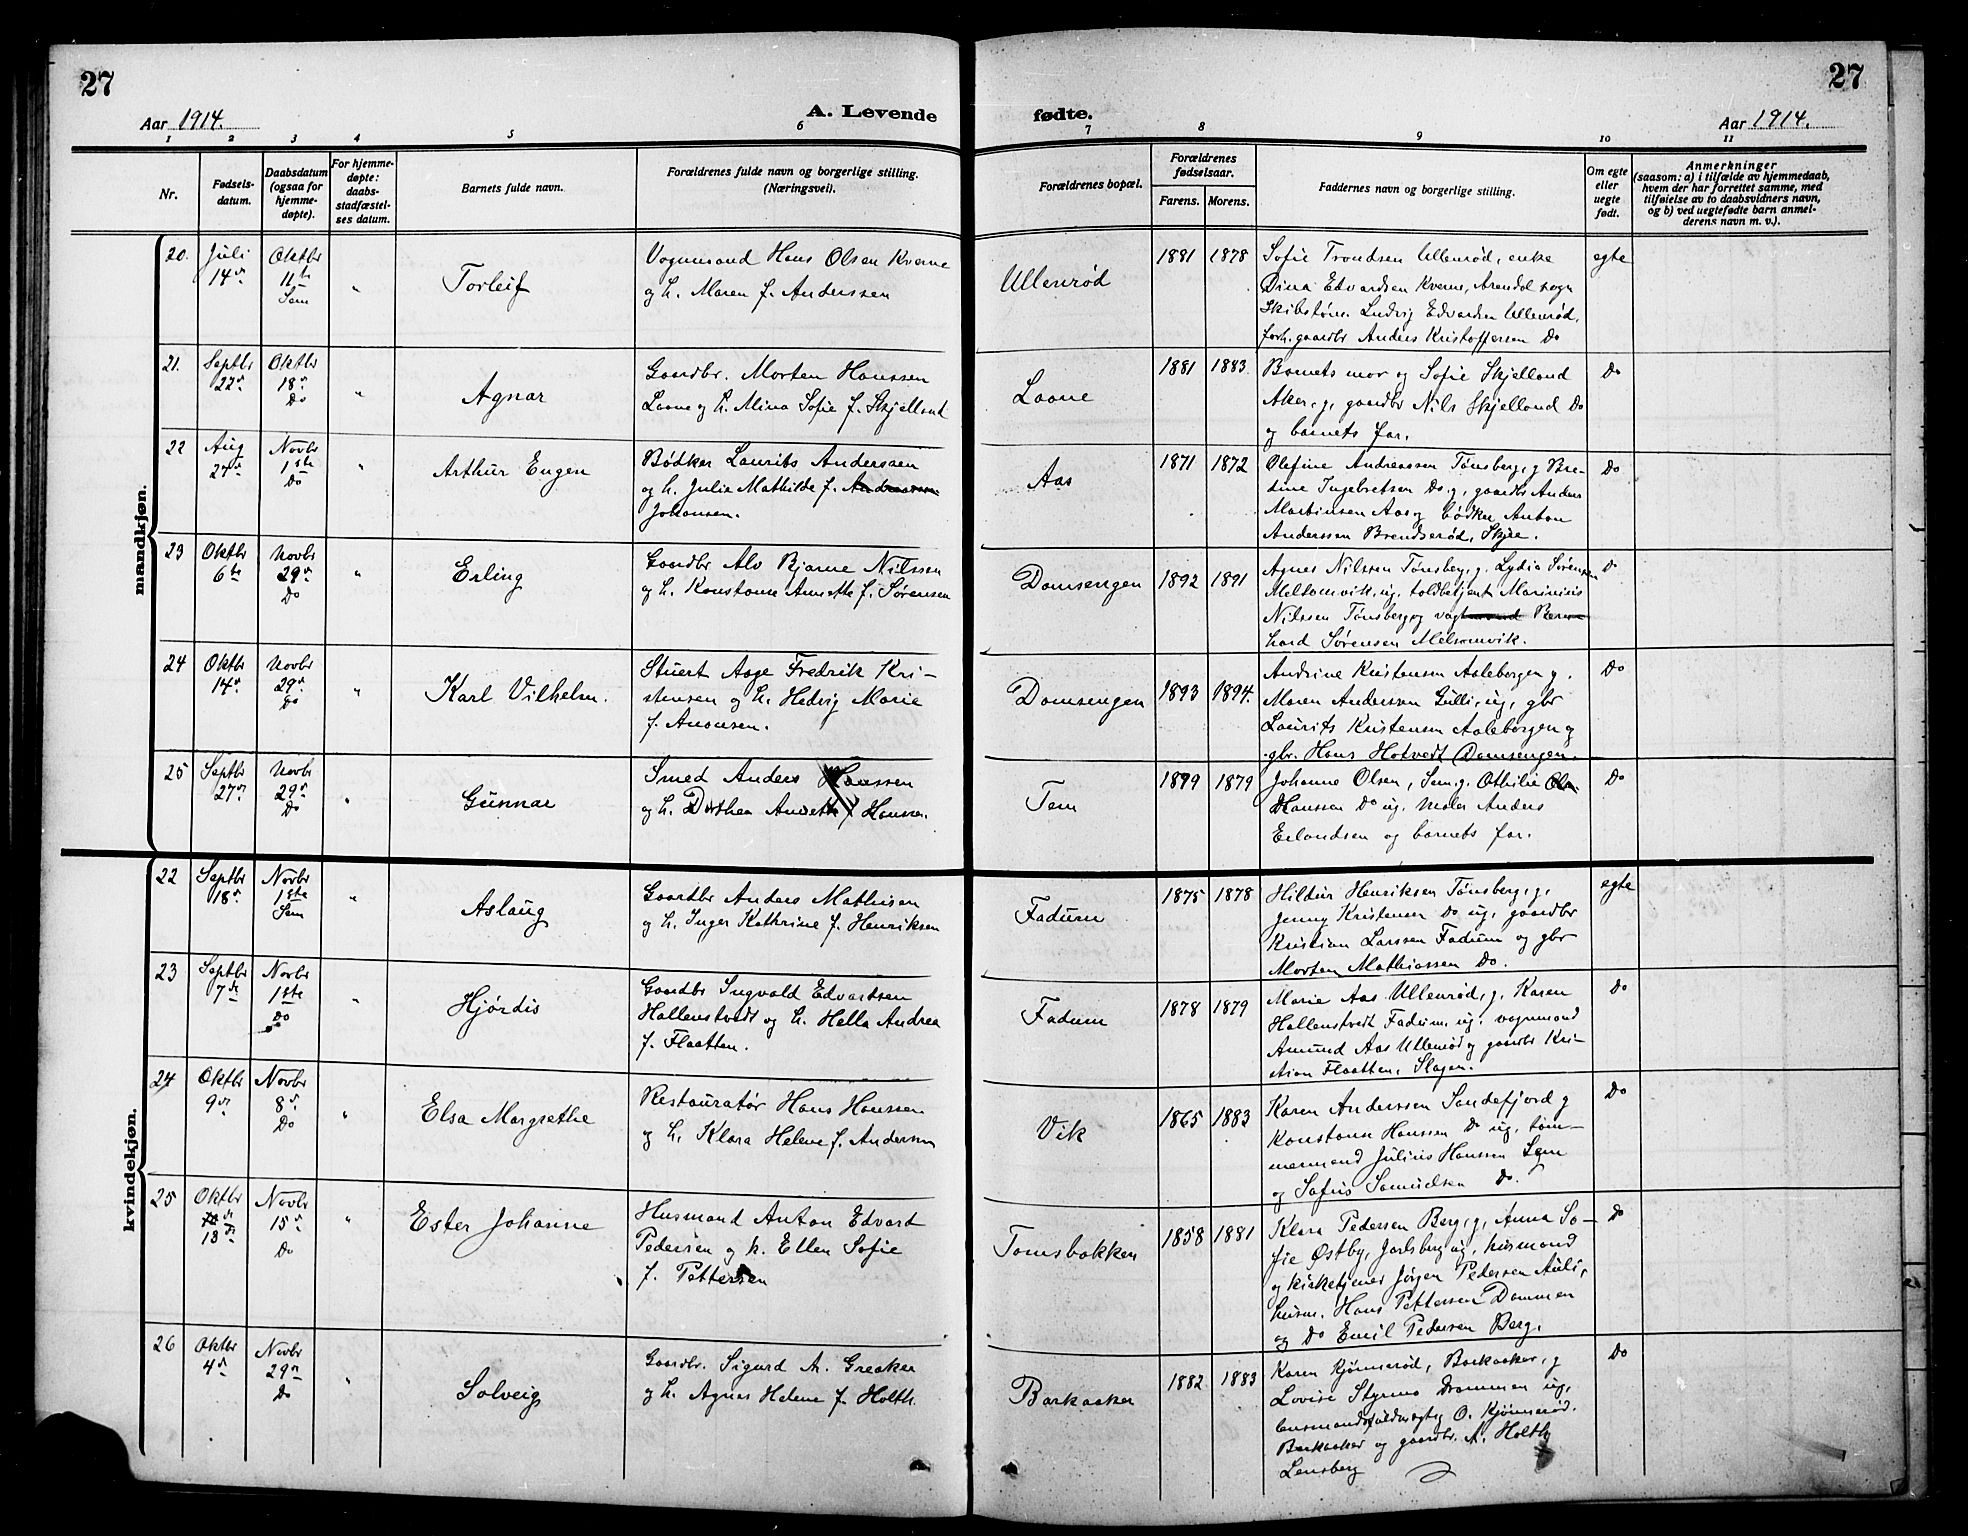 27
27
Aar 1914.
A. Levende
fødte.
Aar 1914.
1 2 3 4 5 6 7 8 9 10 11
Nr.
Fødsels-
datum.
Daabsdatum
(ogsaa for
hjemme-
døpte).
For hjemme-
døpte:
daabs-
stadfæstel-
ses datum.
Barnets fulde navn.
Forældrenes fulde navn og borgerlige stilling.
(Næringsvei).
Forældrenes bopæl.
Forældrenes
fødselsaar.
Farens. Morens.
Faddernes navn og borgerlige stilling.
Om egte
eller
uegte
født.
Anmerkninger
(saasom: a) i tilfælde av hjemmedaab,
hvem der har forrettet samme, med
tilføielse av to daabsvidners navn,
og b) ved uegtefødte barn anmel-
derens navn m. v.).
mandkjøn.
20.
Juli
14de
Oktbr
11te
Sem
"
Torleif
Vognmand Hans Olsen Kverne
og h. Maren f. Anderssen
Ullenrød
1881 1878
Sofie Trondsen Ullenrød, enke
Dina Edvardsen Kverne, Arendal sogn
Skibstøm. Ludvig Edvardsen Ullenrød,
forh. gaardbr Anders Kristoffersen Do
egte
21.
Septbr
22de
Oktbr
18de
Do
"
Agnar
Gaardbr. Morten Hanssen
Laane og h. Mina Sofie f. Skjelland
Laane
1881 1883.
Barnets mor og Sofie Skjelland
Aker, g, gaardbr Nils Skjelland Do
og barnets far.
Do
22
Aug
27de
Novbr
1ste
Do
"
Arthur Eugen
Bødker Laurits Anderssen
og h. Julie Mathilde f. Andreassen
Johansen.
Aas
1871 1872
Olefine Andreassen Tønsberg, g Bre-
dine Ingebretsen Do g, gaardbr Anders
Martinsen Aas og bødker Anton
Anderssen Brendserød, Skjee.
Do
23
Oktbr
6te
Novbr
29de
Do
"
Erling
Gaardbr Alv Bjarne Nilssen
og h. Konstanse Annette f. Sørensen
Domsengen
1892 1891
Agnes Nilssen Tønsberg, g. Lydia Sørensen
Melsomvik, ug. toldbetjent Marinius
Nilssen Tønsberg og vagtmand Bern-
hard Sørensen Melsomvik.
Do
24
Oktbr
14de
Novbr
29de
Do
"
Karl Vilhelm.
Stuert Aage Fredrik Kri-
stensen og h. Hedvig Marie
f. Anonsen.
Domsengen
1893 1894.
Andrine Kristensen Aaleborgen g.
Maren Anderssen Gulli, ug, gbr
Laurits Kristensen Aaleborgen og
gbr. Hans Hotvedt Domsengen.
Do
25
Septbr
27de
Novbr
29de
Do
"
Gunnar
Smed Anders Hanssen
og h. Dorthea Annette f Hanssen.
Tem
1899 1879
Johanne Olsen, Sem, g. Othilie
Hanssen Do ug. maler Anders
Erlandsen og barnets far.
Do
kvindekjøn.
22
Septbr
18de
Novbr
1ste
Sem
"
Aslaug
Gaardbr Anders Mathisen
og h. Inger Kathrine f. Henriksen
Fadum
1875 1878
Hildur Henriksen Tønsberg, g,
Jenny Kristensen Do ug, gaardbr
Kristian Larssen Fadum og gbr
Morten Mathiassen Do.
egte
23
Septbr
7de
Novbr
1ste
Do
"
Hjørdis
Gaardbr Ingvald Edvartsen
Hallenstvedt og h. Hella Andrea
f. Flaatten.
Fadum
1878 1879
Marie Aas Ullenrød, g, Karen
Hallenstvedt Fadum, ug, vognmand
Amund Aas Ullenrød og gaardbr Kri-
stian Flaatten, Slagen.
Do
24
Oktbr
9de
Novbr
8de
Do
"
Elsa Margrethe
Restauratør Hans Hanssen
og h. Klara Helene f. Andersen
Vik
1865 1883
Karen Anderssen Sandefjord g
Konstanse Hanssen Do ug, tøm-
mermand Julius Hanssen Sem
og Sofus Samuelsen Do.
Do
25
Oktbr
13de
Novbr
15de
Do
"
Ester Johanne
Husmand Anton Edvard
Pedersen og h. Ellen Sofie
f. Pettersen
Tomsbakken
1858 1881
Klara Pedersen Berg, g, Anna So-
fie Østby, Jarlsberg ug, husmand
og kirketjener Jørgen Pedersen Auli,
husm. Hans Pettersen Dammen
og Do Emil Pedersen Berg.
Do
26
Oktbr
4de
Novbr
29de
Do
"
Solveig
Gaardbr. Sigurd A. Greaker
og h. Agnes Helene f. Holth.
Barkaaker
1882 1883
Karen Kjønnerød, Barkaaker, g
Lovise Styrmo Drammen ug,
lensmandsfuldmægtig O. Kjønnerød.
Barkaaker og gaardbr. A. Holth
Lensberg
Do